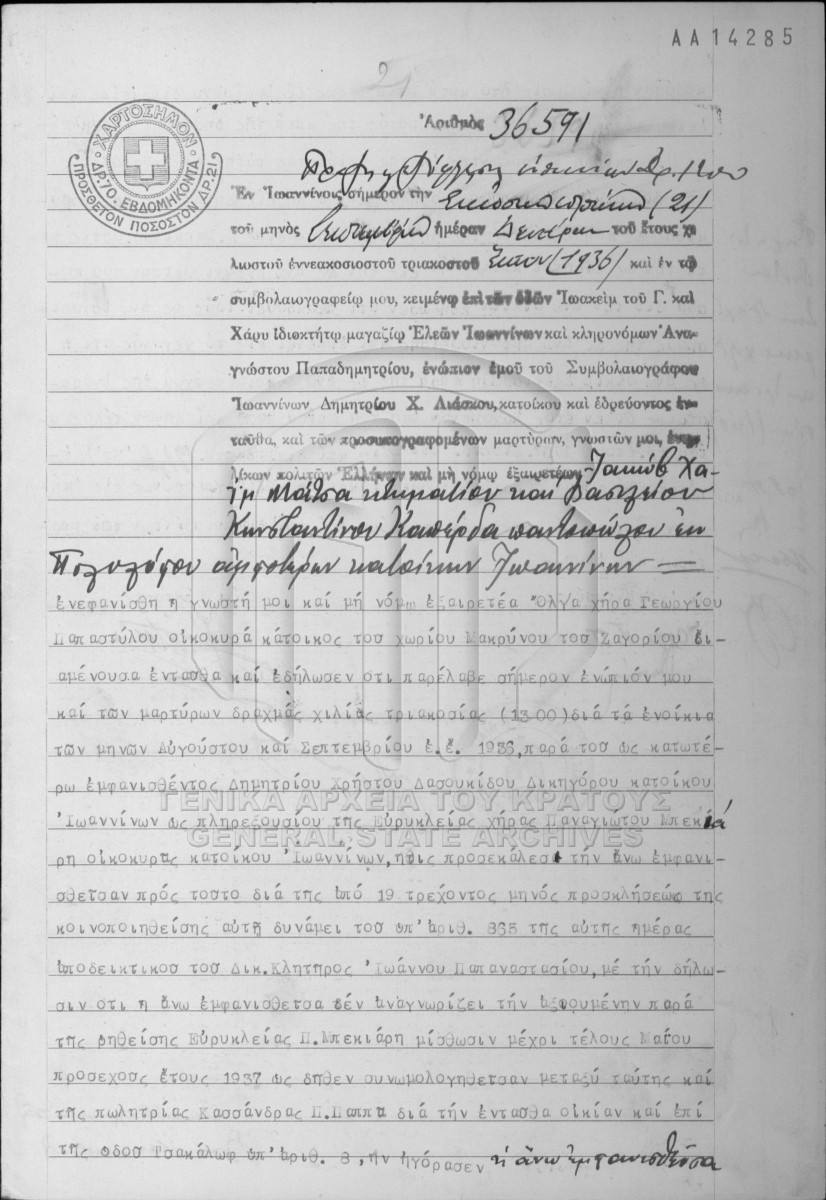 ΑΑ14285
21
ΧΑΡΤΟΣΗΜΟΝ
ΔΡ.70. ΕΒΔΟΜΗΚΟΝΤΑ
ΠΡΟΣΘΕΤΟΝ ΠΟΣΟΣΤΟΝ ΔΡ.21
Ἀριθμὸς 36591
Ἐν Ἰωαννίνοις σήμερον τὴν (21)
τοῦ μηνὸς Σεπτεμβρίου ἡμέραν Δευτέραν τοῦ ἔτους χι
λιοστοῦ ἐννεακοσιοστοῦ τριακοστοῦ Ἕκτου (1936) καὶ ἐν τῷ
συμβολαιογραφείῳ μου, κειμένῳ ἐπὶ τῶν ὁδῶν Ἰωακεὶμ τοῦ Γ. καὶ
Χάρυ ἰδιοκτήτῳ μαγαζίῳ Ἐλεῶν Ἰωαννίνων καὶ κληρονόμων Ἀνα-
γνώστου Παπαδημητρίου, ἐνώπιον ἐμοῦ τοῦ Συμβολαιογράφου
Ἰωαννίνων Δημητρίου Χ. Λιάσκου, κατοίκου καὶ ἑδρεύοντος ἐν-
ταῦθα, καὶ τῶν προσυπογραφομένων μαρτύρων, γνωστῶν μοι, ἐνη-
λίκων πολιτῶν Ἑλλήνων καὶ μὴ νόμῳ ἐξαιρετέων Ἰακὼβ Χα-
ΐμ Μάτσα κτηματίου καὶ Βασιλείου
Κωνσταντίνου Καπέρδα παντοπώλου ἐν
Πολυλόφου ἀμφοτέρων κατοίκων Ἰωαννίνων
ἐνεφανίσθη η γνωστή μοι καί μή νόμῳ ἐξαιρετέα Ὄλγα χήρα Γεωργίου
Παπαστύλου οἰκοκυρά κάτοικος τοσ χωρίου Μακρύνου τοσ Ζαγορίου δι-
αμένουσα ἐντασθα καί ἐδήλωσεν οτι παρέλαβε σήμερον ἐνώπιόν μου
καί των μαρτύρων δραχμάς χιλίας τριακοσίας (1300) διά τά ἐνοίκια
των μηνων Αὐγούστου καί Σεπτεμβρίου ἐ.ἔ. 1936, παρά τοσ ως κατωτέ-
ρω ἐμφανισθέντος Δημητρίου Χρήστου Δασουκίδου Δικηγόρου κατοίκου
Ἰωαννίνων ως πληρεξουσίου της Εὐρυκλείας χήρας Παναγιώτου Μπεκιά
ρη οἰκοκυρας κατοίκου Ἰωαννίνων, ητις προσεκάλεσε τήν ἄνω ἐμφανι-
σθεῖσαν πρός τοστο διά της ἀπό 19 τρέχοντος μηνός προσκλήσεως της
κοινοποιηθείσης αὐτῇ δυνάμει τοσ ὑπ' ἀριθ. 865 της αὐτης ἡμέρας
ἀποδεικτικοσ τοσ Δικ. Κλητηρος Ἰωάννου Παπαναστασίου, μέ τήν δήλω-
σιν οτι η ἄνω ἐμφανισθεισα δέν ἀναγνωρίζει τήν ἀξιουμένην παρά
της ρηθείσης Εὐρυκλείας Π. Μπεκιάρη μίσθωσιν μέχρι τέλους Μαΐου
προσεχοσς ἔτους 1937 ως δηθεν συνομολογηθεισαν μεταξύ ταύτης καί
της πωλητρίας Κασσάνδρας Π. Παππα διά τήν ἐντασθα οἰκίαν καί ἐπί
της οδοσ Τσακάλωφ ὑπ' ἀριθ. 8, ην ἠγόρασεν ἡ ἄνω ἐμφανισθεῖσα
ΓΕΝΙΚΑ ΑΡΧΕΙΑ ΤΟΥ ΚΡΑΤΟΥΣ
GENERAL STATE ARCHIVES